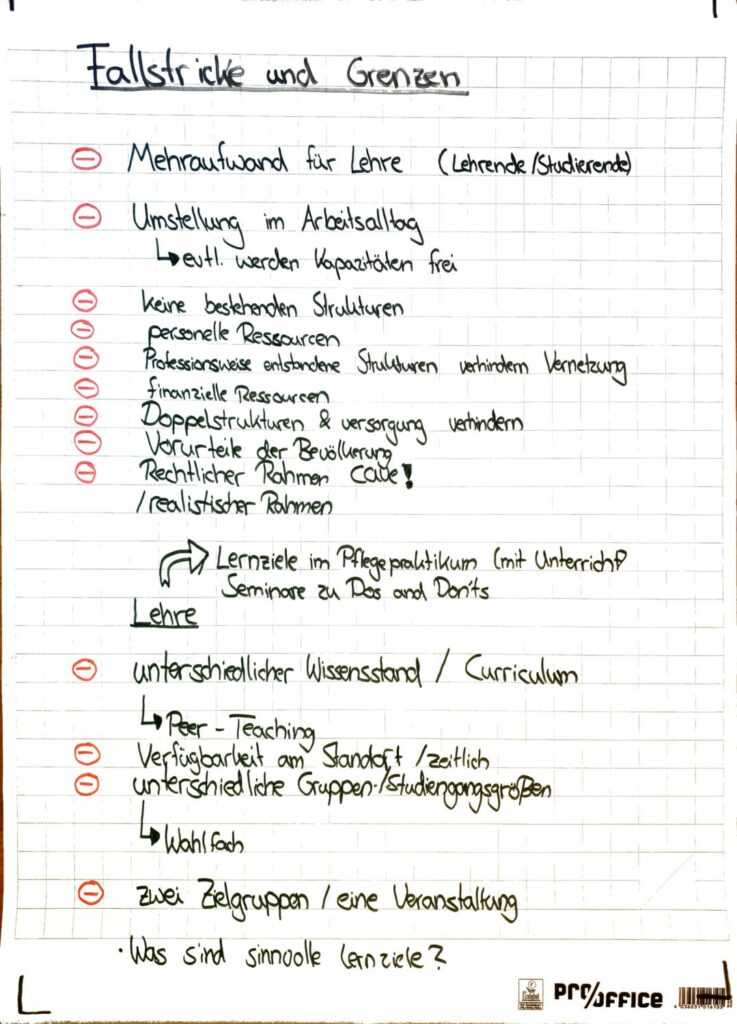 Fallstricke und Grenzen
⊖ Mehraufwand für Lehre (Lehrende/Studierende)
⊖ Umstellung im Arbeitsalltag
↳ evtl. werden Kapazitäten frei
⊖ keine bestehenden Strukturen
⊖ personelle Ressourcen
⊖ Professionsweise entstandene Strukturen verhindern Vernetzung
⊖ finanzielle Ressourcen
⊖ Doppelstrukturen & versorgung verhindern
⊖ Vorurteile der Bevölkerung
⊖ Rechtlicher Rahmen cave!
/realistischer Rahmen
Lernziele im Pflegepraktikum (mit Unterricht?
Seminare zu Dos and Don'ts
Lehre
⊖ unterschiedlicher Wissensstand / Curriculum
↳ Peer-Teaching
⊖ Verfügbarkeit am Standort /zeitlich
⊖ unterschiedliche Gruppen-/Studiengangsgrößen
↳ Wahlfach
⊖ zwei Zielgruppen / eine Veranstaltung
· Was sind sinnvolle Lernziele?
PRO/OFFICE